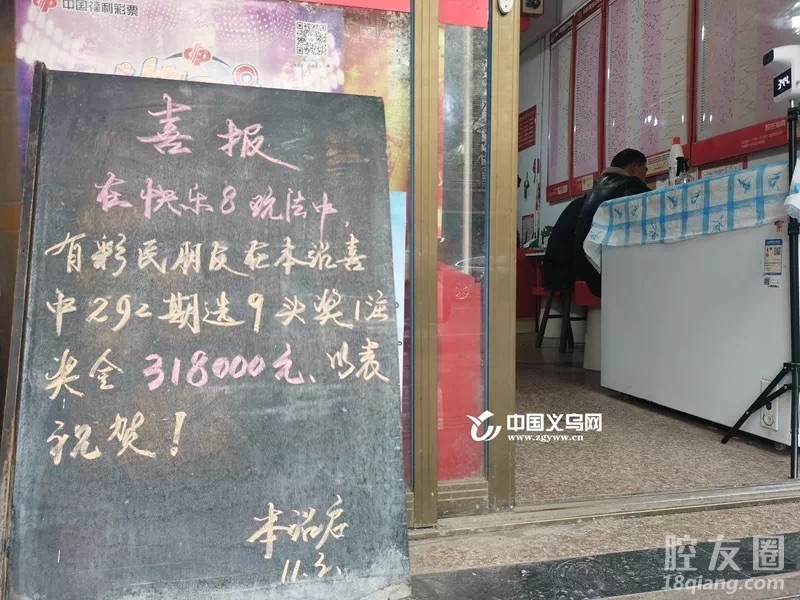 中国福利彩票
喜报
在快乐8玩法中,
有彩民朋友在本站喜
中292期选9头奖1注
奖金318000元、以表
祝贺!
本站启
11.2.
中国义乌网
www.zgyww.cn
腔友圈
18qiang.com